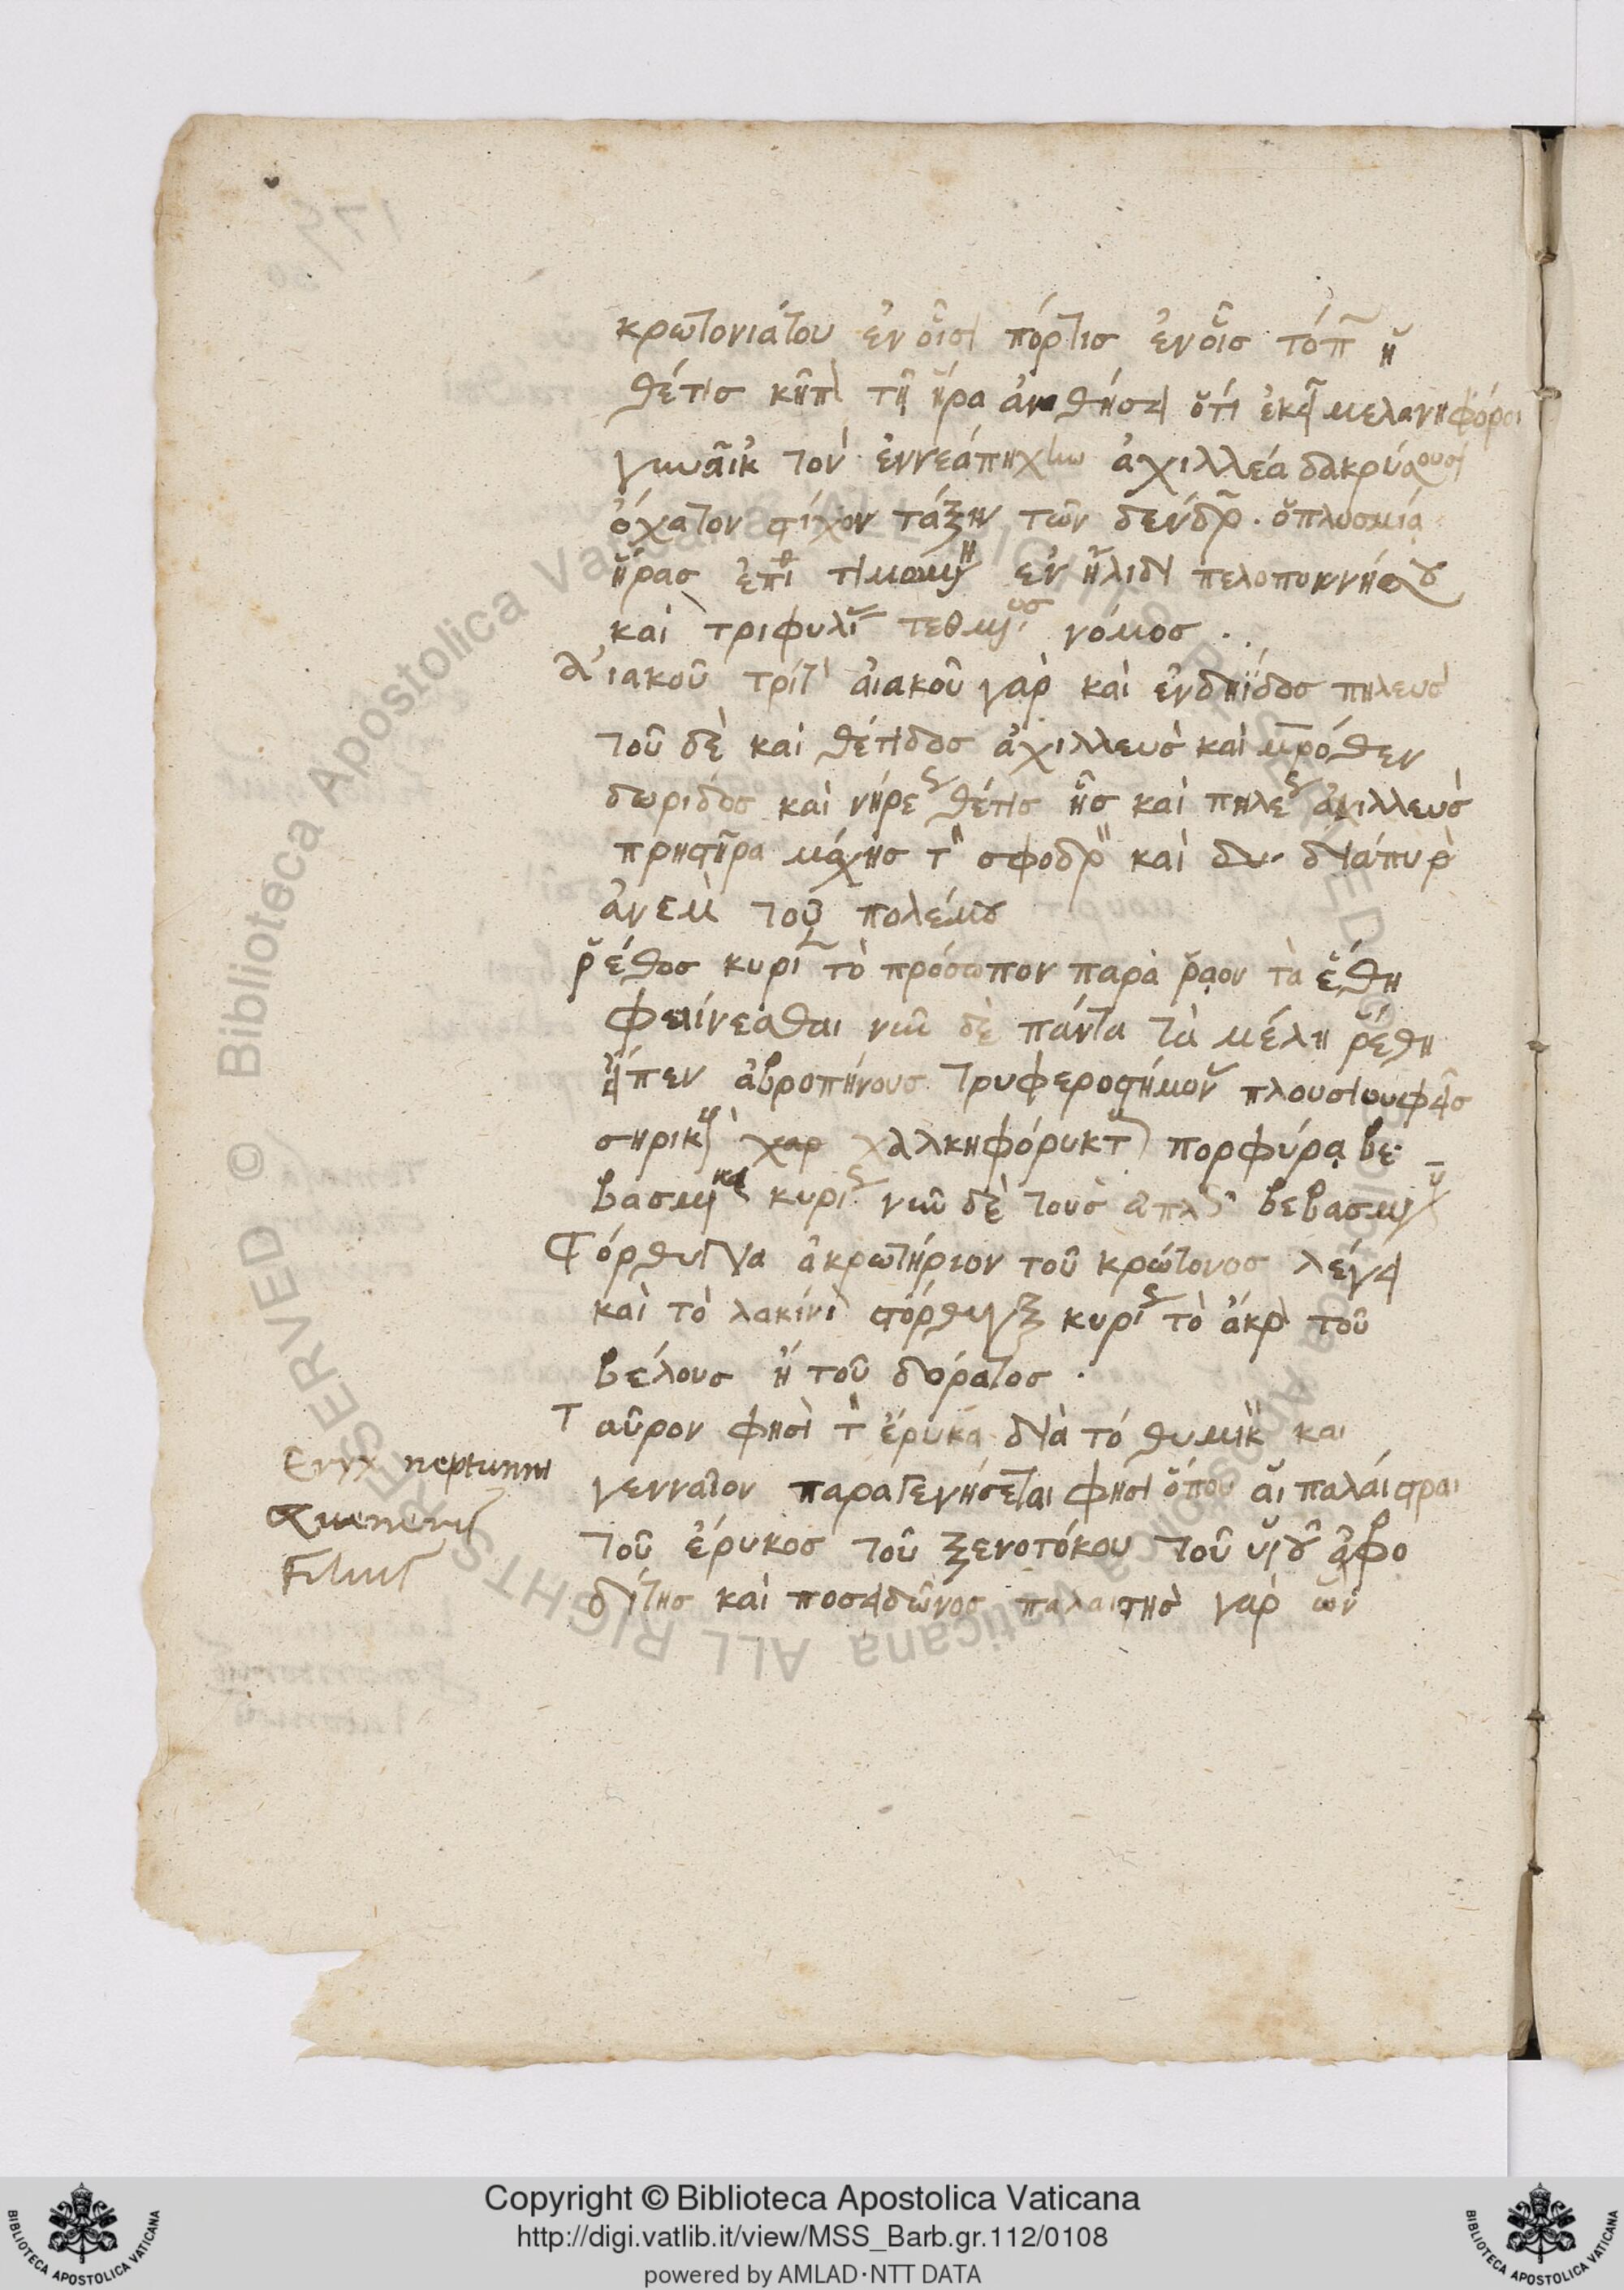 κρωτονιάτου ἐν οἷσι πόρτισ ἐν οἷσ τόπ ἡ
θέτισ κῆπ τῇ ἥρα ὅτι ἐκεῖ μελανηφόροι
γυναῖκ τὸν ἐννεάπηχυν ἀχιλλέα δακρύουσι
ὄχατον στίχον τάξιν τῶν δένδρ. ὁπλοσμία
ἥρας ἐν ἤλιδι πελοποννήσου
καὶ τριφυλί τεθμ νόμοσ .
Αἰακοῦ τρίτ αἰακοῦ γὰρ καὶ ἐνδηΐδοσ πηλεὺσ
τοῦ δὲ καὶ θέτιδοσ ἀχιλλεὺσ καὶ μρόθεν
δωρίδοσ καὶ νήρε θέτισ ἧσ καὶ πηλε ἀχιλλεὺσ
πρηστῆρα μάχησ τ σφοδρ καὶ διάπυρ
ἀνεμ τοῦ πολέμου
ῥέθοσ κυρί τὸ πρόσωπον παρὰ ῥᾷον τὰ ἔθη
φαίνεσθαι νῦν δὲ πάντα τὰ μέλη ῥέθη
εἶπεν ἁβροπήνουσ τρυφεροστήμον πλουσιουφεῖσ
σηρικ χαρ χαλκηφόρυκτ πορφύρα βε
βασμ κυρί νῦν δὲ τοὺσ ἁπλ βεβασμ
Στόρθυγγα ἀκρωτήριον τοῦ κρώτονοσ λέγει
καὶ τὸ λακίνι στόρθυγξ κυρί τὸ ἄκρ τοῦ
βέλουσ ἢ τοῦ δόρατοσ .
Ταῦρον φησὶ τ ἔρυκα διὰ τὸ θυμικ καὶ
Eryx neptunni
γενναῖον παραγενήσεται φησὶ ὅπου αἱ παλαίστραι
& veneris
τοῦ ἔρυκοσ τοῦ ξενοτόκου τοῦ υἱοῦ ἀφρο
Filius
δίτησ καὶ ποσειδῶνοσ παλαιστὴσ γὰρ ὢν
Copyright © Biblioteca Apostolica Vaticana
http://digi.vatlib.it/view/MSS_Barb.gr.112/0108
powered by AMLAD·NTT DATA